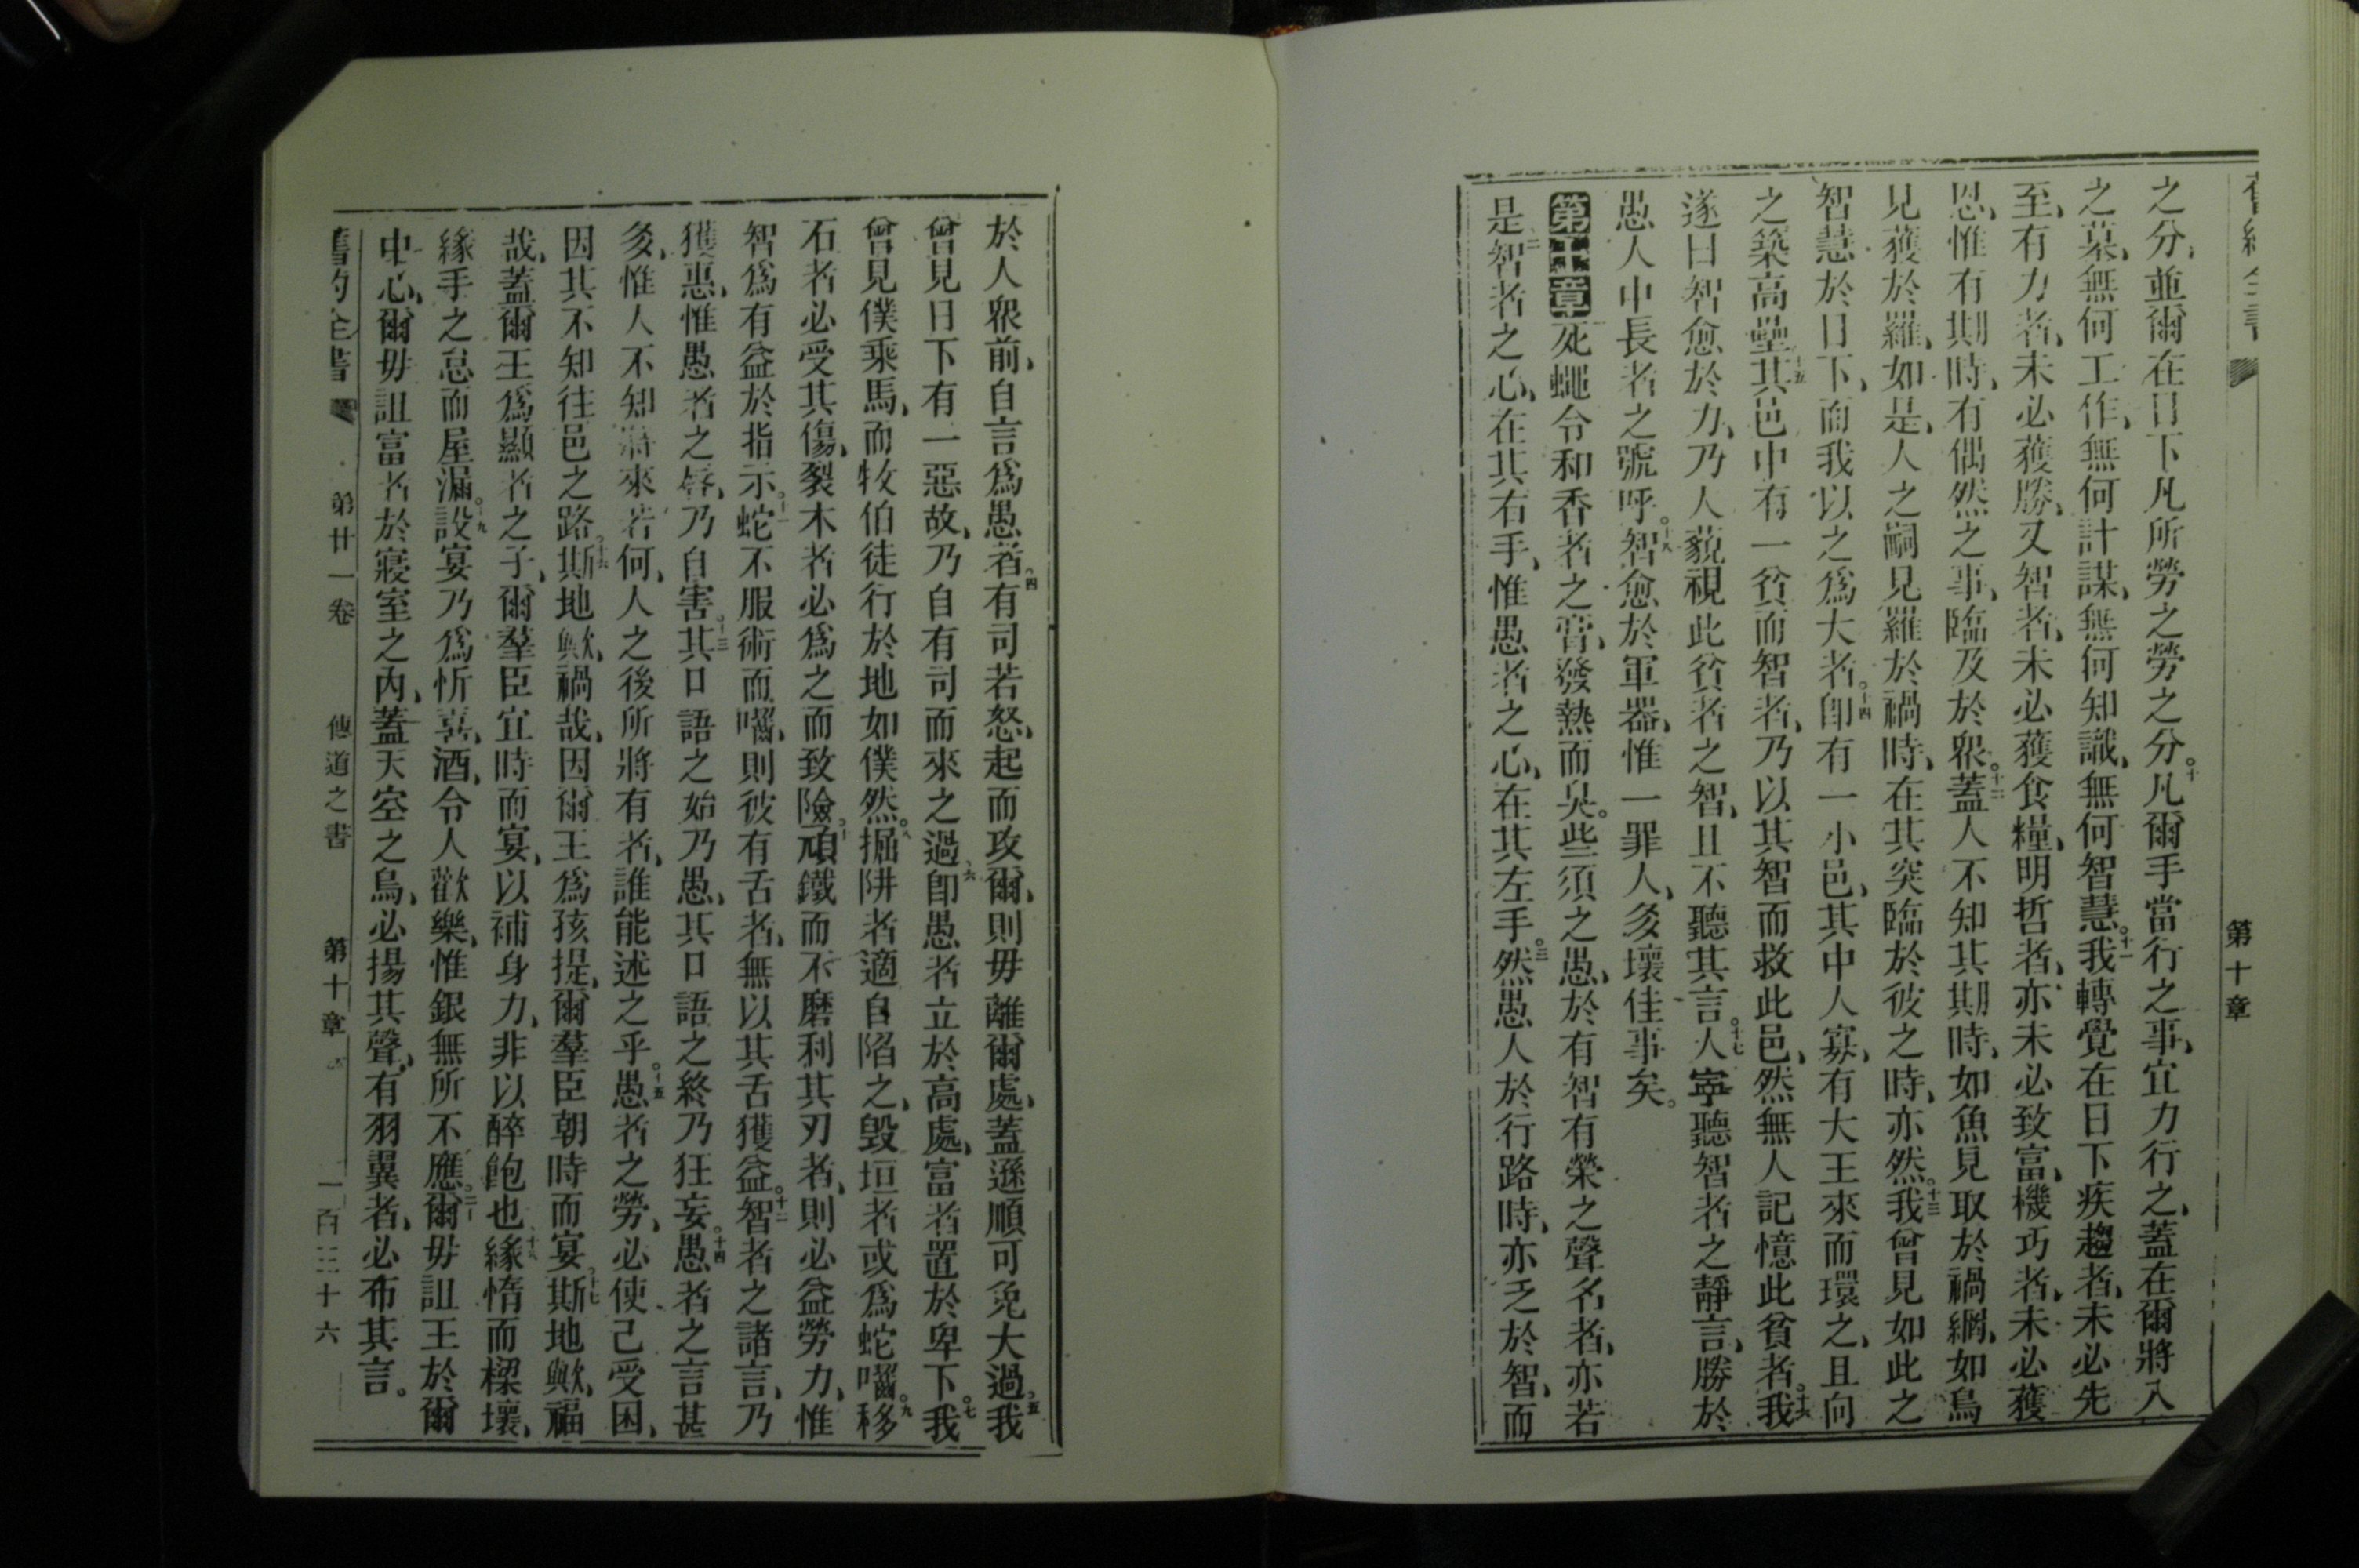 第十章
之分、並爾在日下凡所勞之勞之分。十凡爾手當行之事、宜力行之、蓋在爾將入
之墓、無何工作、無何計謀、無何知識、無何智慧。十一我轉覺在日下疾趨者、未必先
至、有力者、未必獲勝、又智者、未必獲食糧、明哲者、亦未必致富、機巧者、未必獲
恩、惟有期時、有偶然之事、臨及於眾。十二蓋人不知其期時、如魚見取於禍網、如鳥
見獲於羅、如是、人之嗣見羅於禍時、在其突臨於彼之時、亦然。十三我曾見如此之
智慧於日下、而我以之爲大者。十四卽有一小邑、其中人寡、有大王來而環之、且向
之築高壘、十五其邑中有一貧而智者、乃以其智而救此邑、然無人記憶此貧者。十六我
遂曰智愈於力、乃人藐視此貧者之智、且不聽其言。十七人寧聽智者之靜言、勝於
愚人中長者之號呼。十八智愈於軍器、惟一罪人、多壞佳事矣。
第十章死蠅令和香者之膏、發熱而臭。些須之愚、於有智有榮之聲名者、亦若
是、二智者之心、在其右手、惟愚者之心、在其左手。三然愚人於行路時、亦乏於智、而
於人眾前、自言爲愚者。四有司若怒、起而攻爾、則毋離爾處、蓋遜順可免大過。五我
曾見日下有一惡故、乃自有司而來之過、六卽愚者立於高處、富者置於卑下。七我
曾見僕乘馬、而牧伯徒行於地如僕然。八掘阱者適自陷之、毀垣者或爲蛇嚙。九移
石者必受其傷、裂木者必爲之而致險。十頑鐵而不磨利其刃者、則必益勞力、惟
智爲有益於指示。十一蛇不服術而嚙、則彼有舌者、無以其舌獲益。十二智者之諸言、乃
獲惠、惟愚者之唇、乃自害。十三其口語之始乃愚、其口語之終乃狂妄。十四愚者之言甚
多、惟人不知將來若何、人之後所將有者、誰能述之乎。十五愚者之勞、必使己受困、
因其不知往邑之路。十六斯地歟、禍哉、因爾王爲孩提、爾羣臣朝時而宴。十七斯地歟、福
哉、蓋爾王爲顯者之子、爾羣臣宜時而宴、以補身力、非以醉飽也。十八緣惰而樑壞、
緣手之怠而屋漏。十九設宴乃爲忻喜、酒、令人歡樂、惟銀無所不應。二十爾毋詛王於爾
中心、爾毋詛富者於寢室之內、蓋天空之鳥、必揚其聲、有羽翼者、必布其言。
舊約全書 第廿一卷 傳道之書 第十章 一百三十六